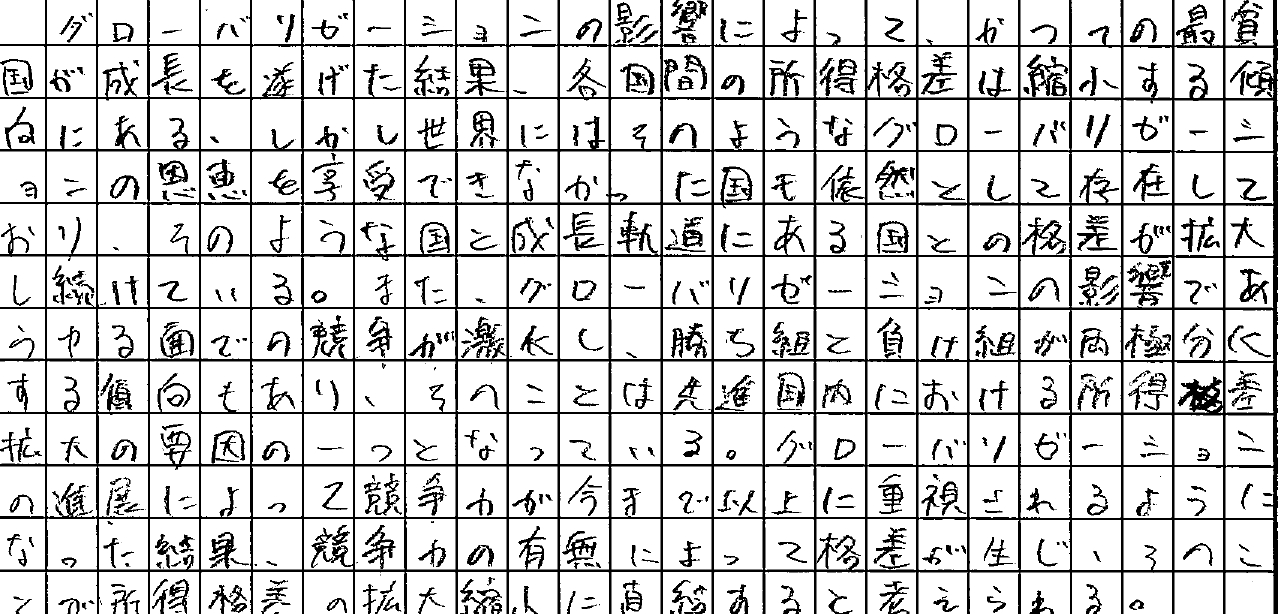 グローバリゼーションの影響によって、かつての最貧
国が成長を遂げた結果、各国間の所得格差は縮小する傾
向にある、しかし世界にはそのようなグローバリゼーシ
ョンの恩恵を享受できなかった国も依然として存在して
おり、そのような国と成長軌道にある国との格差が拡大
し続けている。また、グローバリゼーションの影響であ
らゆる面での競争が激化し、勝ち組と負け組が両極分化
する傾向もあり、そのことは先進国内における所得格差
拡大の要因の一つとなっている。グローバリゼーション
の進展によって競争力が今まで以上に重視されるように
なった結果、競争力の有無によって格差が生じ、そのこ
とが所得格差の拡大縮小に直結すると考えられる。